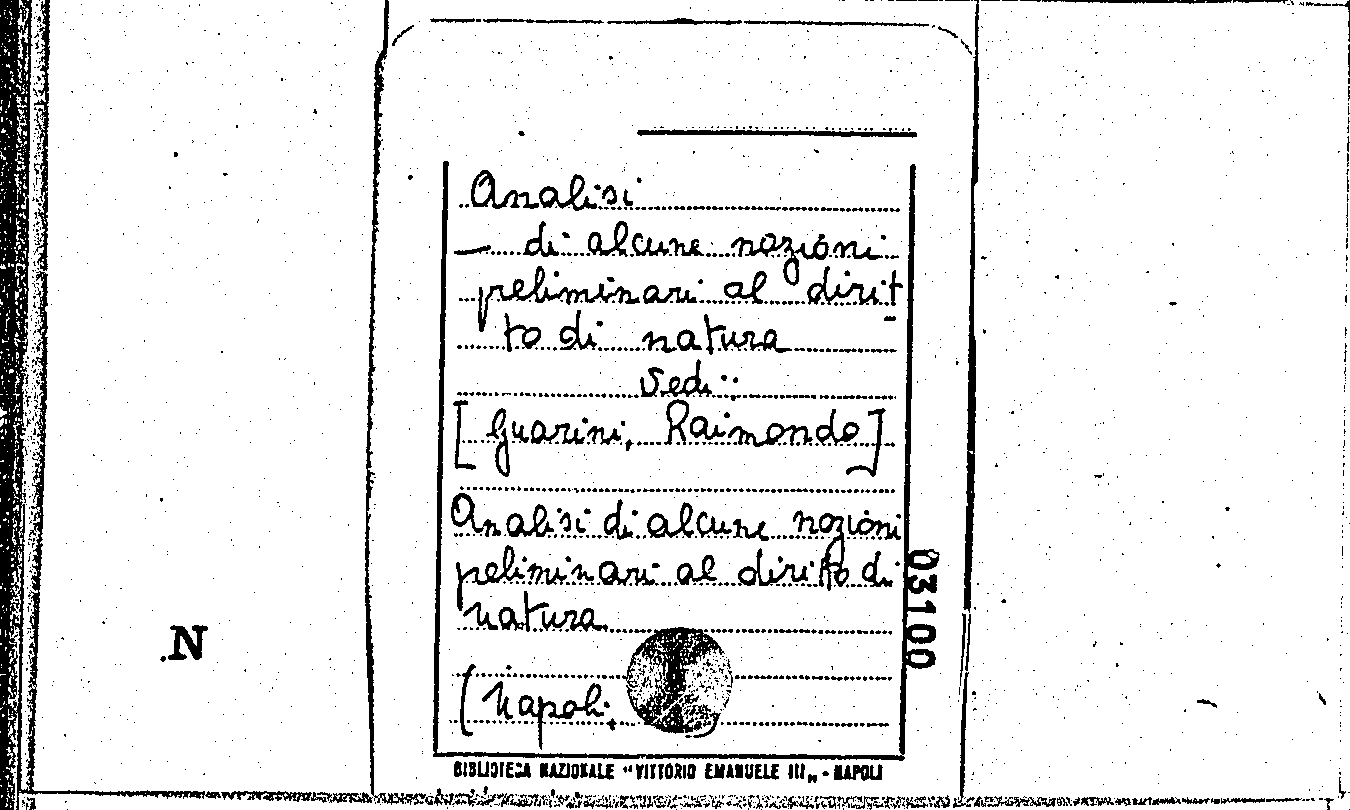 Analisi
— di alcune nozioni
preliminari al dirit
to di natura
Vedi:
[Guarini, Raimondo]
Analisi di alcune nozioni
preliminari al diritto di
natura
(Napoli,
BIBLIOTECA NAZIONALE "VITTORIO EMANUELE III„ - NAPOLI
03100
N